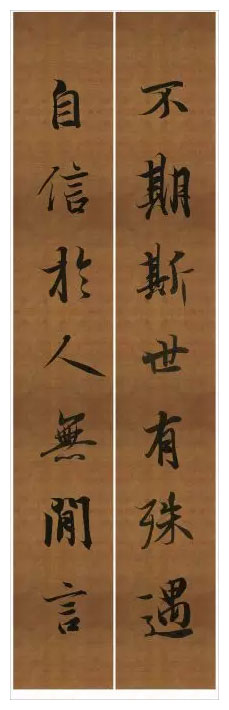 不期斯世有殊遇
自信於人無閒言